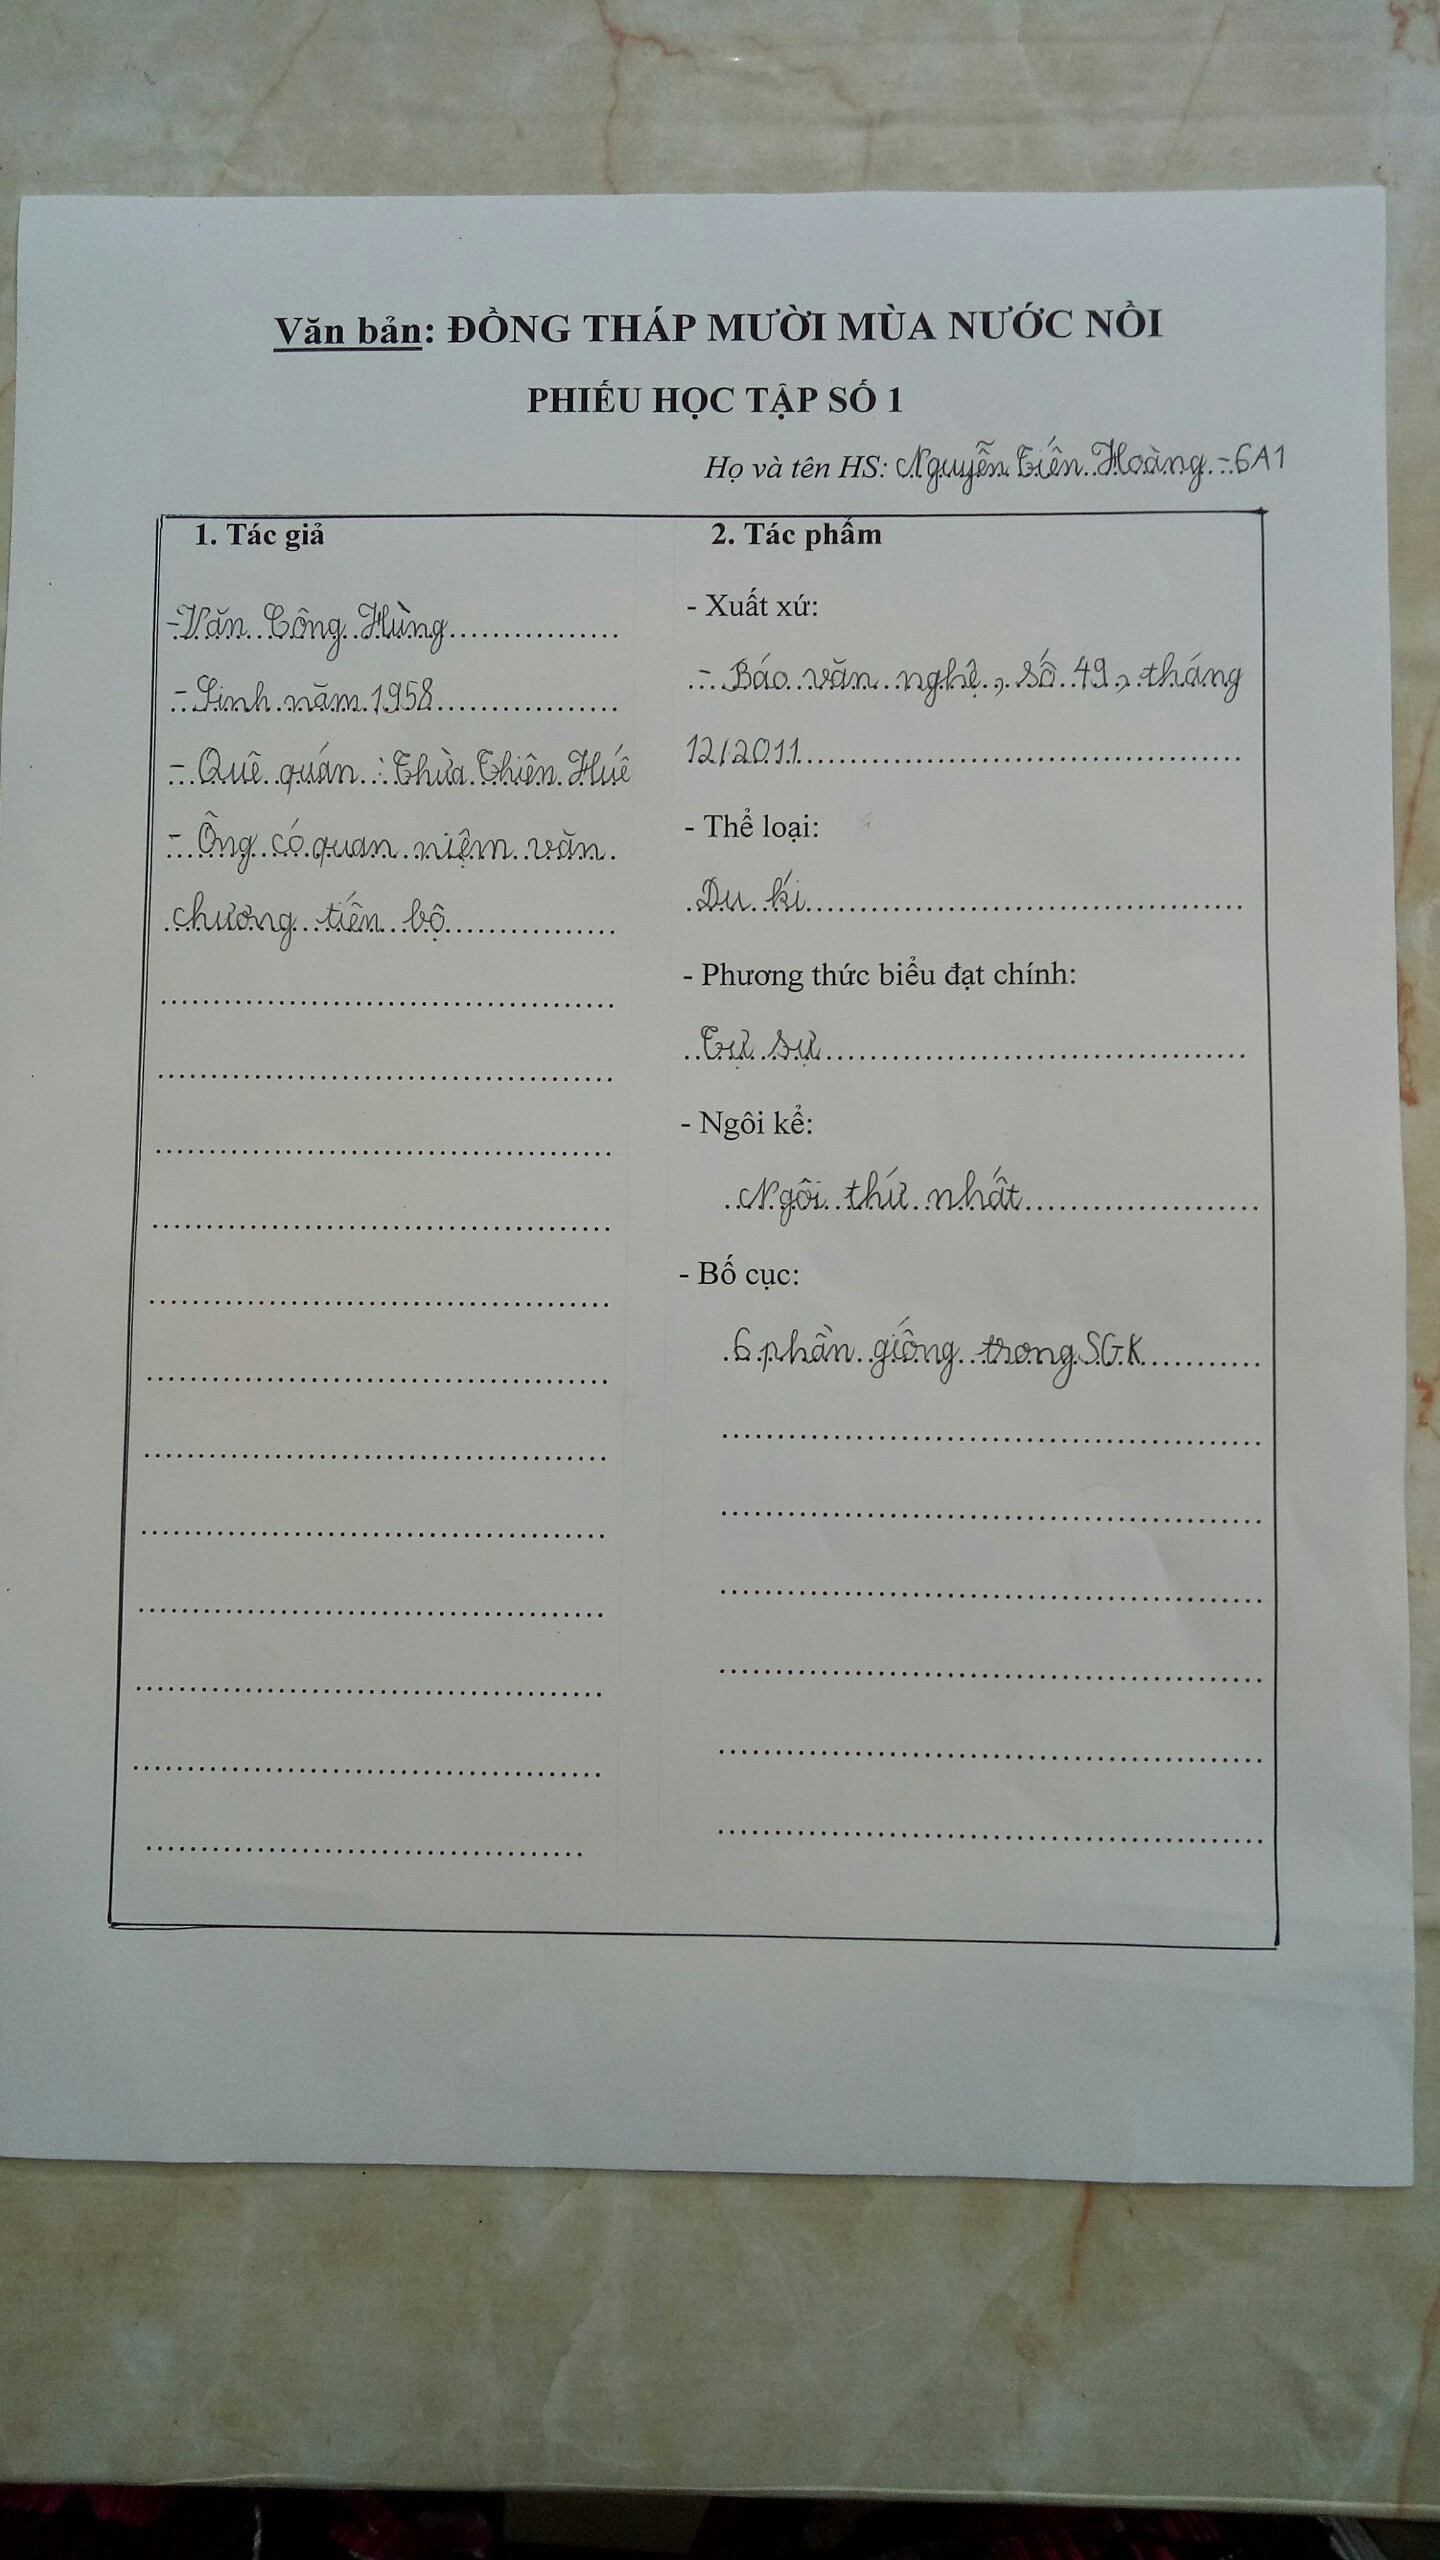 Văn bản: ĐỒNG THÁP MƯỜI MÙA NƯỚC NỒI
PHIẾU HỌC TẬP SỐ 1
Họ và tên HS: Nguyễn Tiến Hoàng - 6A1
1. Tác giả
- Văn Công Hùng
- Sinh năm 1958
- Quê quán : Thừa Thiên Huế
- Ông có quan niệm văn
chương tiến bộ
2. Tác phẩm
- Xuất xứ:
- Báo văn nghệ, số 49, tháng
12/2011
- Thể loại:
Du kí
- Phương thức biểu đạt chính:
Tự sự
- Ngôi kể:
Ngôi thứ nhất
- Bố cục:
6 phần giống trong SGK